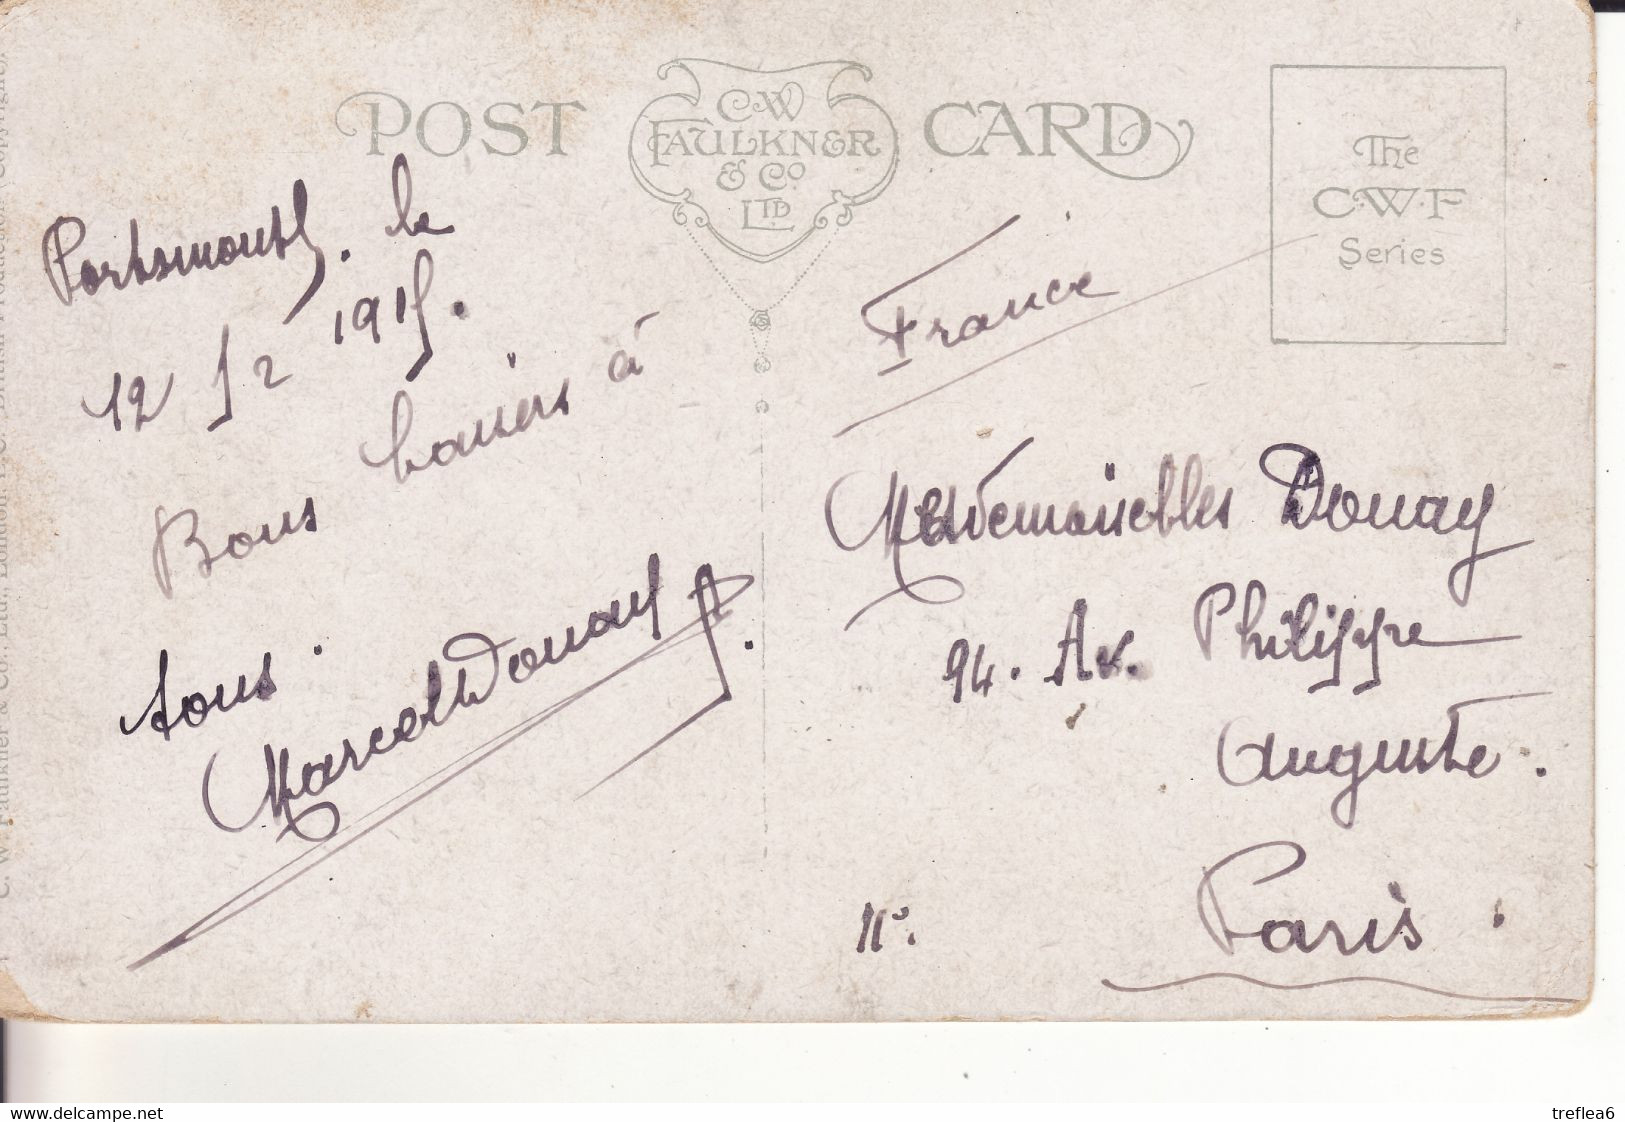 POST CARD
C.W.
FAULKNER
& Co
LTD
The
C.W.F
Series
Portsmouth. le
12 / 2 1915.
Bons baisers à
tous.
Marcel Douay
France
Mesdemoiselles Douay
94. Av. Philippe
Auguste.
Paris.
11e.
C. W. Faulkner & Co., Ltd., London, E.C. British Production (Copyright).
treflea6
delcampe.net